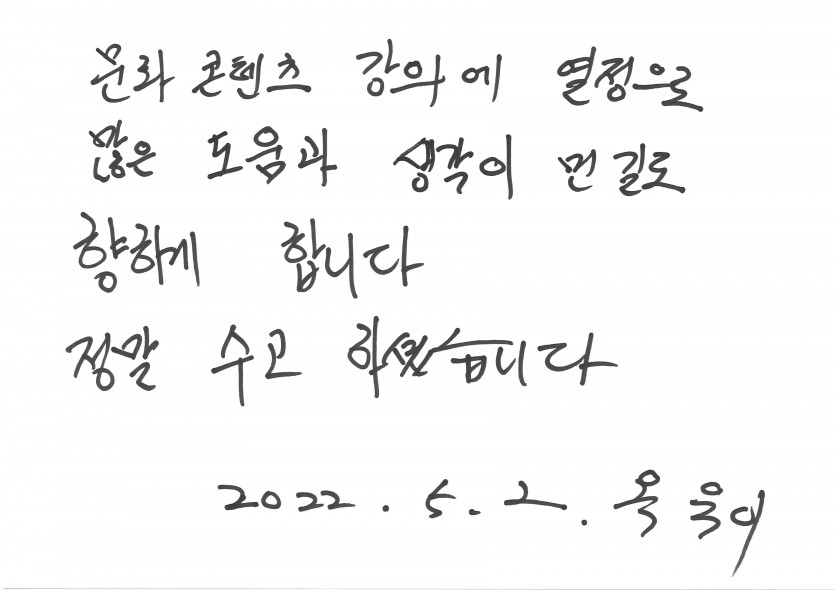 문화 콘텐츠 강의에 열정으로
많은 도움과 생각이 먼 길로
향하게 합니다
정말 수고 하셨습니다
2022. 5. 2.